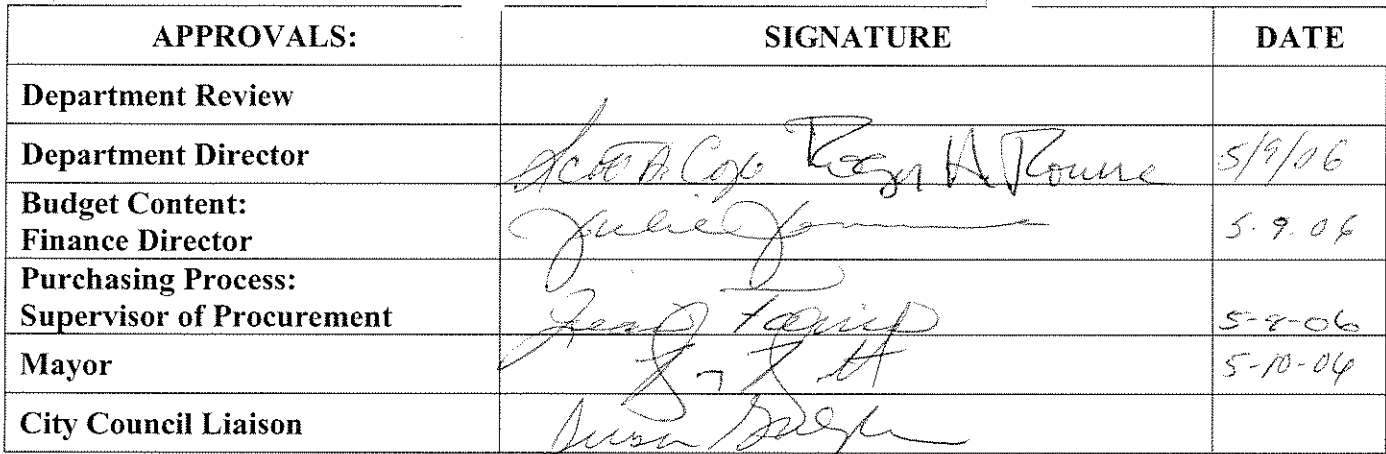 APPROVALS: SIGNATURE DATE
Department Review
Department Director Scott A. Roger H 5/9/06
Budget Content:
Finance Director Julie 5.9.06
Purchasing Process:
Supervisor of Procurement 5-8-06
Mayor 5-10-06
City Council Liaison Susan